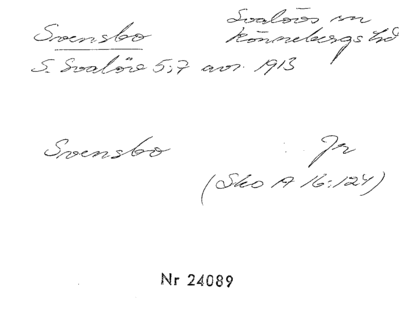 Svensbo
Svalövs sn
Rönnebergs hd
S. Svalöv 5:7 avs. 1913
Svensbo Jr
(Sko A 16:124)
Nr 24089